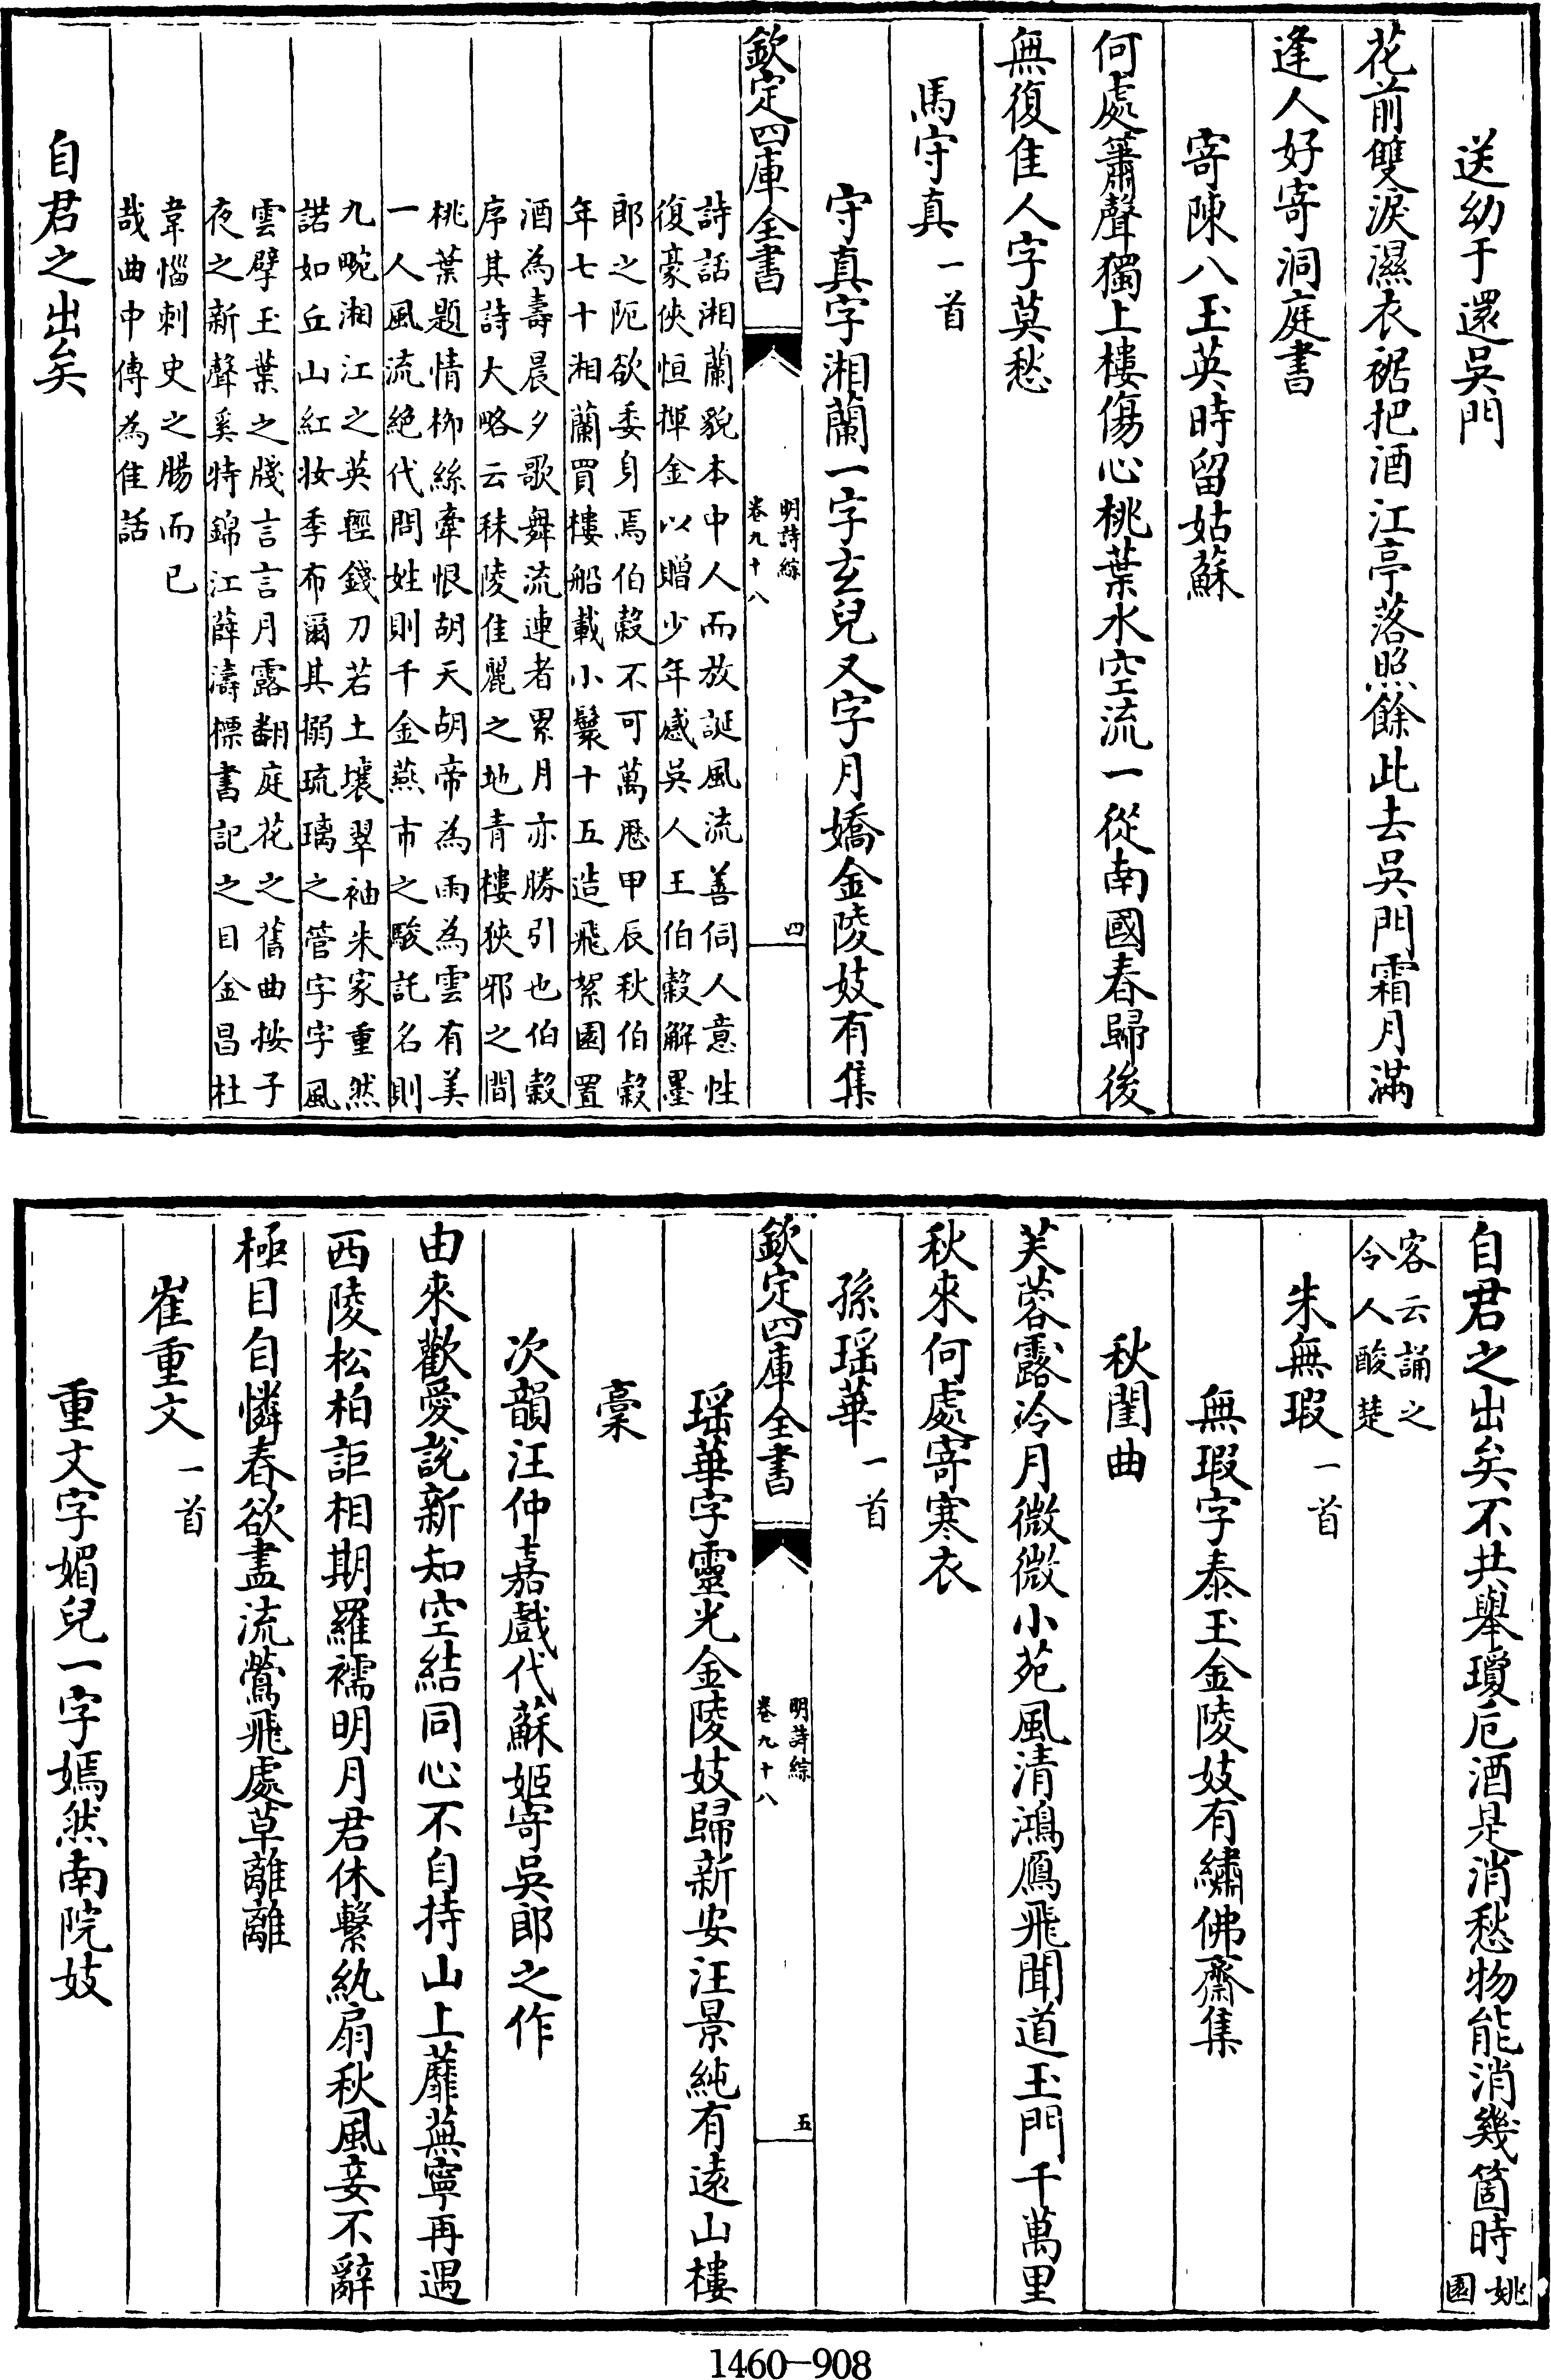 送幼于還吳門
花前雙淚濕衣裾把酒江亭落照餘此去吳門霜月滿
逢人好寄洞庭書
寄陳八玉英時留姑蘇
何處簫聲獨上樓傷心桃葉水空流一從南國春歸後
無復佳人字莫愁
馬守真一首
守真字湘蘭一字玄兒又字月嬌金陵妓有集
欽定四庫全書
明詩綜
卷九十八
四
詩話湘蘭貌本中人而放誕風流善伺人意性
復豪俠恒揮金以贈少年感吳人王伯穀解墨
郎之阨欲委身焉伯穀不可萬厯甲辰秋伯穀
年七十湘蘭買樓船載小鬟十五造飛絮園置
酒為壽晨夕歌舞流連者累月亦勝引也伯穀
序其詩大略云秣陵佳麗之地青樓狹邪之間
桃葉題情栁絲牽恨胡天胡帝為雨為雲有美
一人風流絶代問姓則千金燕市之駿託名則
九畹湘江之英輕錢刀若土壤翠袖朱家重然
諾如丘山紅妝季布爾其搦琉璃之管字字風
雲擘玉葉之牋言言月露翻庭花之舊曲按子
夜之新聲奚特錦江薛濤標書記之目金昌杜
韋惱刺史之腸而已
哉曲中傳為佳話
自君之出矣
自君之出矣不共舉瓊卮酒是消愁物能消幾箇時姚
園
客云誦之
令人酸楚
朱無瑕一首
無瑕字泰玉金陵妓有繡佛齋集
秋閨曲
芙蓉露冷月微微小苑風清鴻鴈飛聞道玉門千萬里
秋來何處寄寒衣
孫瑶華一首
欽定四庫全書
明詩綜
卷九十八
五
瑶華字靈光金陵妓歸新安汪景純有遠山樓
稾
次韻汪仲嘉戲代蘇姬寄吳郎之作
由來歡愛說新知空結同心不自持山上蘼蕪寧再遇
西陵松柏詎相期羅襦明月君休繫紈扇秋風妾不辭
極目自憐春欲盡流鶯飛處草離離
崔重文一首
重文字媚兒一字嫣然南院妓
1460—908